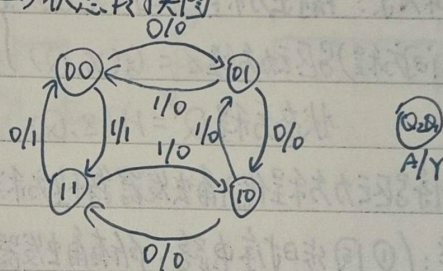 状态转换图
0/0
00
01
1/0
0/1
1/1
1/0
1/0
0/0
11
10
0/0
Q₂Q₁
A/Y